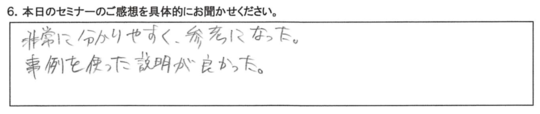 6. 本日のセミナーのご感想を具体的にお聞かせください。
非常に分かりやすく、参考になった。
事例を使った説明が良かった。